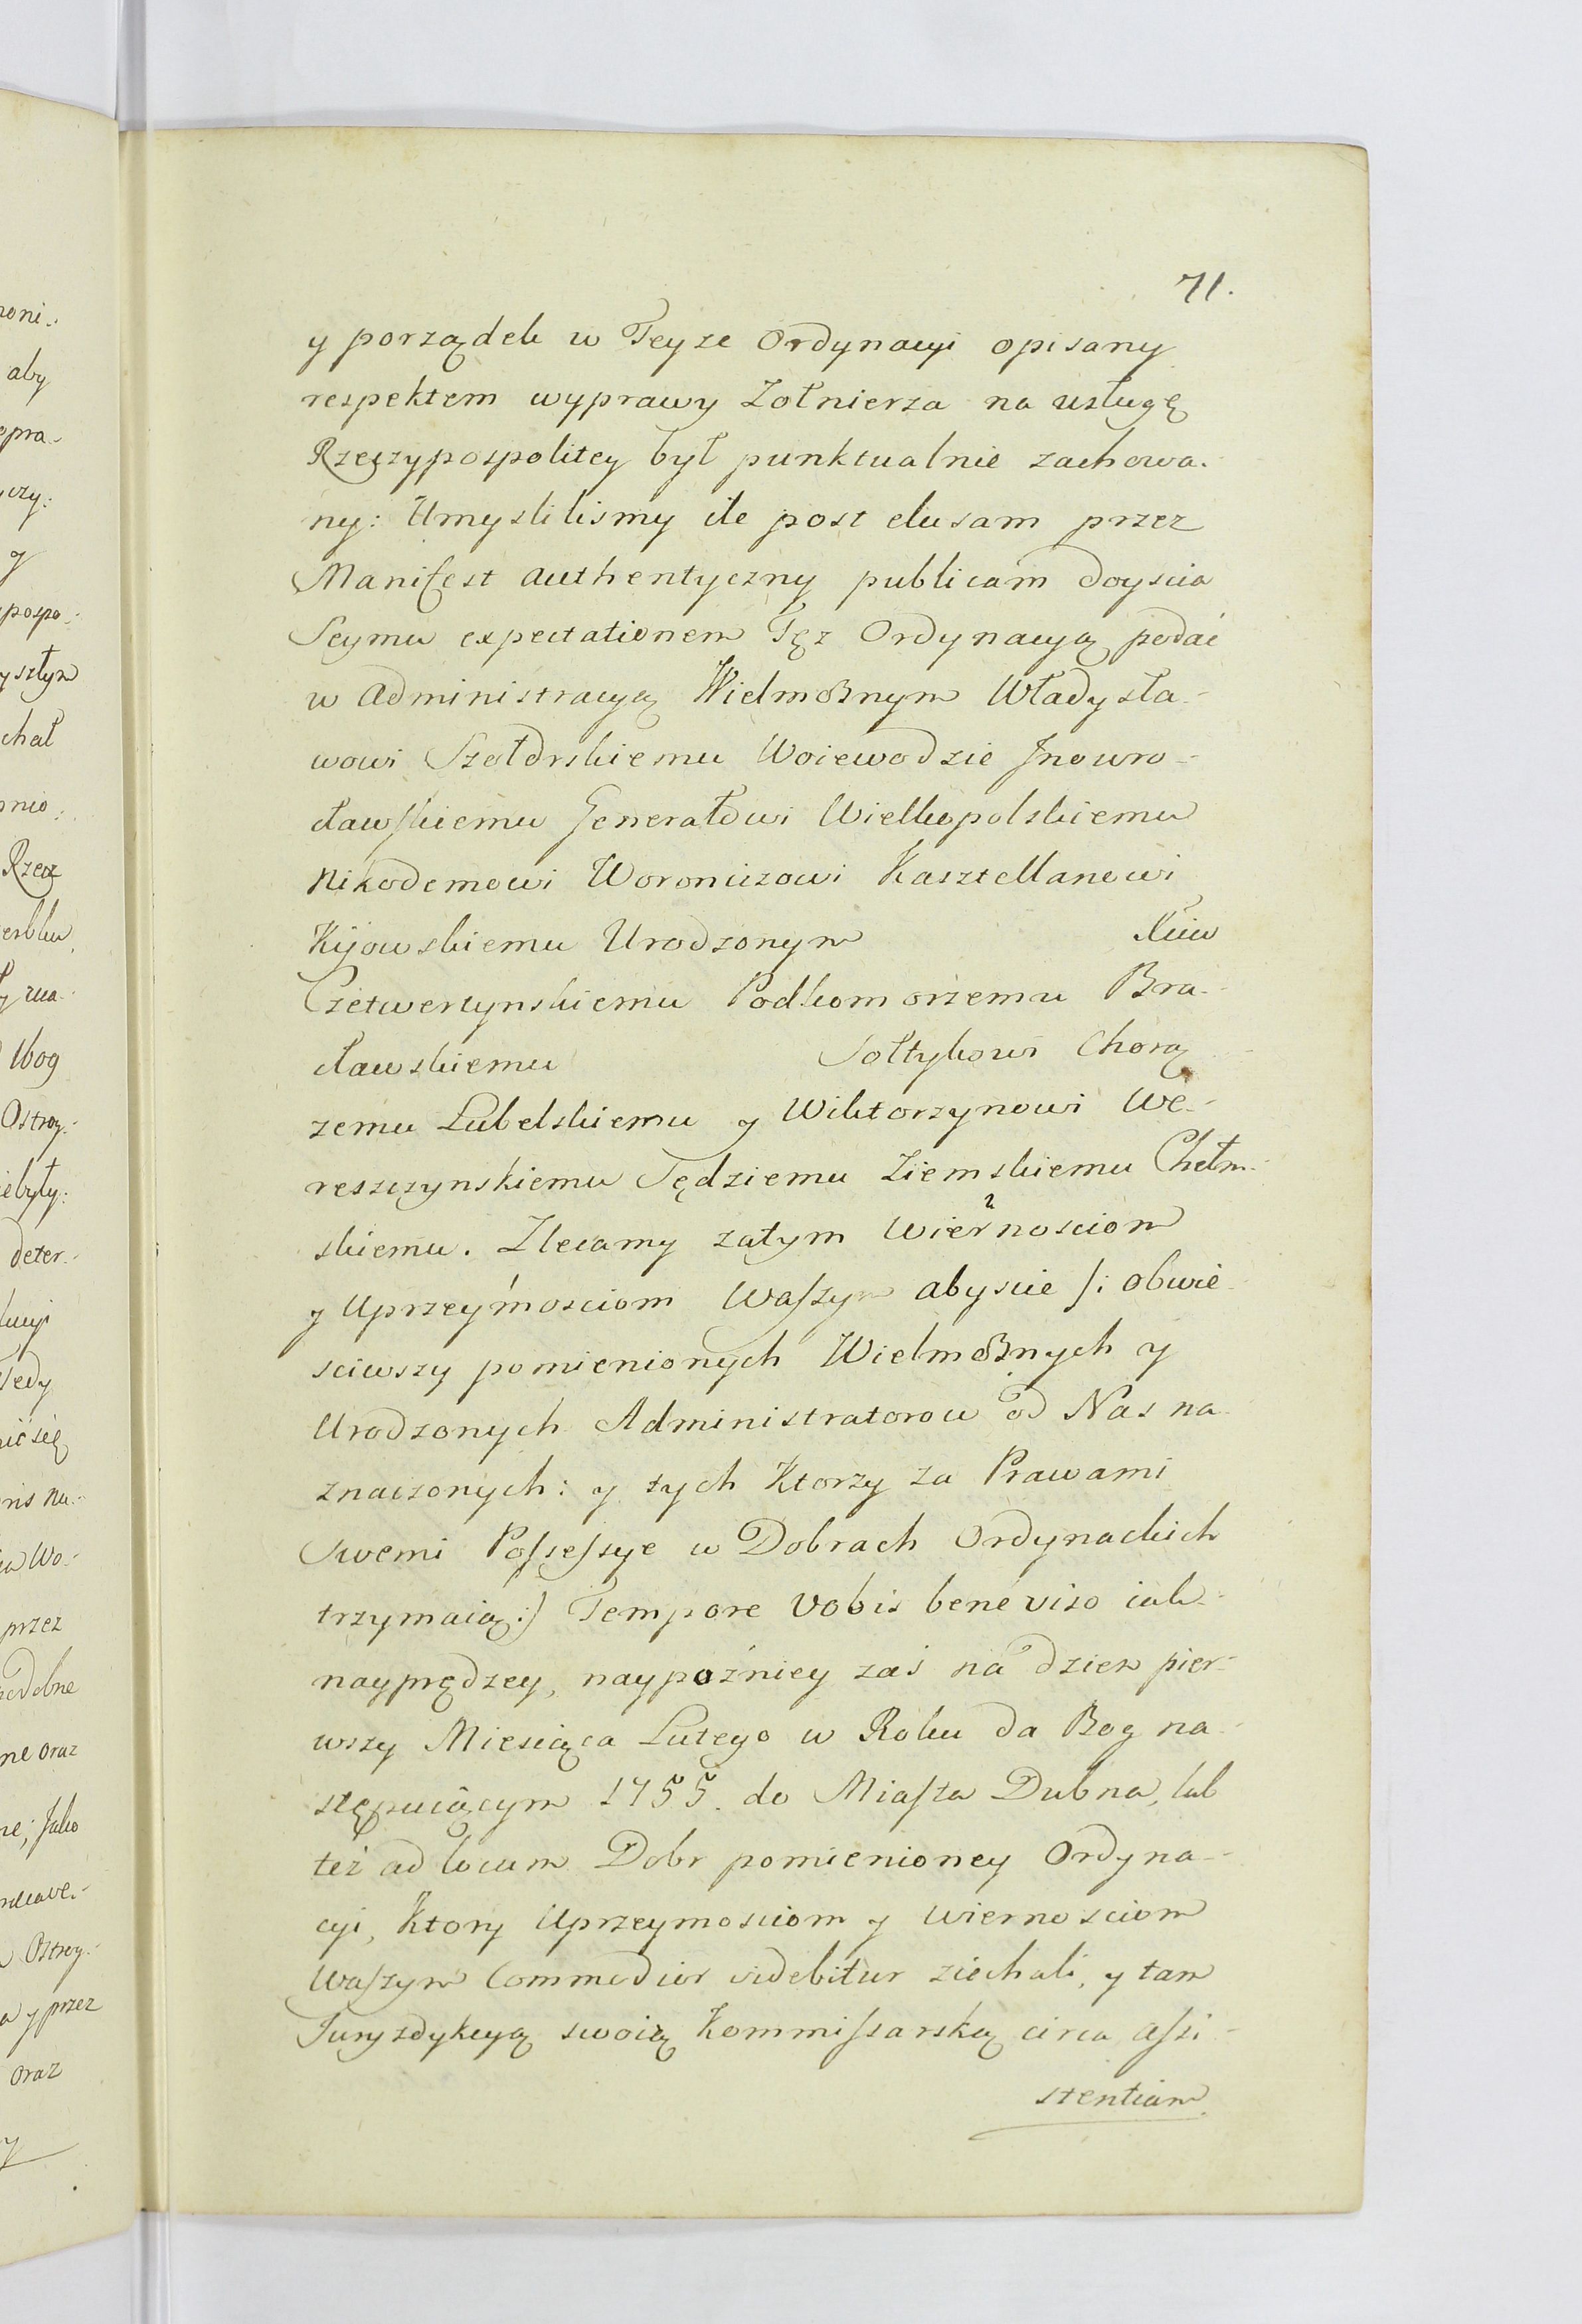 71.
y porządek w Teyze Ordynacyi opisany
respektem wyprawy Zołnierza na usługę
Rzeczypospolitey był punktualnie zachowa-
ny: Umyslilismy ile post elusam przez
Manifest authentyczny publicam doyscia
Seymu expectationem Tęz Ordynacyą podać
w Administracyą Wielmożnym Władysła-
wowi Szołdrskiemu Woiewodzie Jnowro-
cławskiemu Generałowi Wielkopolskiemu
Nikodemowi Woroniczowi Kasztellanowi
Kijowskiemu Urodzonym Xciu
Czetwertynskiemu Podkomorzemu Bra-
cławskiemu Sołtykowi Chorą
zemu Lubelskiemu y Wiktorzynowi We-
reszczynskiemu Sędziemu Ziemskiemu Chełm-
skiemu. Zlecamy zatym Wiernosciom
y Uprzeymosciom Waszym abyscie /: obwie-
sciwszy pomienionych Wielmożnych y
Urodzonych Administratorow od Nas na
znaczonych: y tych Ktorzy za Prawami
Swemi Possessye w Dobrach Ordynackich
trzymaią:/ Tempore Vobis bene viso iak-
nayprędzey, naypoźniey zaś na dzien pier-
wszy Miesiąca Lutego w Roku da Bog na-
stępuiącym 1755. do Miasta Dubna, lub
też ad locum Dobr pomienioney Ordyna-
cyi, Ktory Uprzeymosciom y Wiernosciom
Waszym Commodior videbitur ziechali, y tam
Juryzdykcyą swoią Kommissarską circa assi-
stentiam
noni-
aby
opra-
czy:
y
pospo-
yszłym
chał
Rzecz
Ubog
Ostrog-
iebyły:
deter-
Tedy
ić się
ris na-
Wo-
przez
ne oraz
ne; Jako
Ostrog-
a y przez
oraz